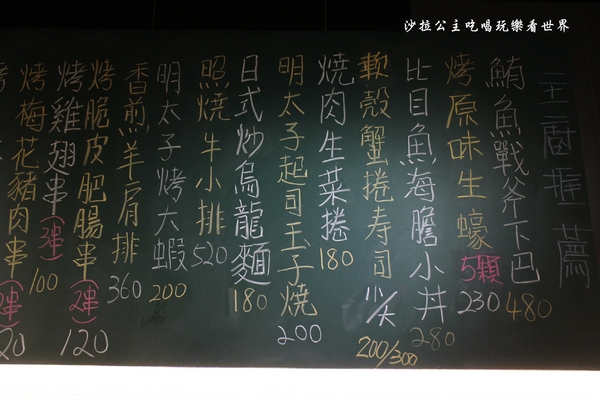 沙拉公主吃喝玩樂看世界
主廚推薦
鮪魚戰斧下巴 480
烤原味生蠔 5顆 230
比目魚海膽小丼 280
軟殼蟹捲壽司 小/大 200/300
燒肉生菜捲 180
明太子起司玉子燒 200
日式炒烏龍麵 180
照燒牛小排 520
明太子烤大蝦 200
香煎羊肩排 360
烤脆皮肥腸串(2串)
烤雞翅串(3串) 120
烤梅花豬肉串 100
(2串) 20